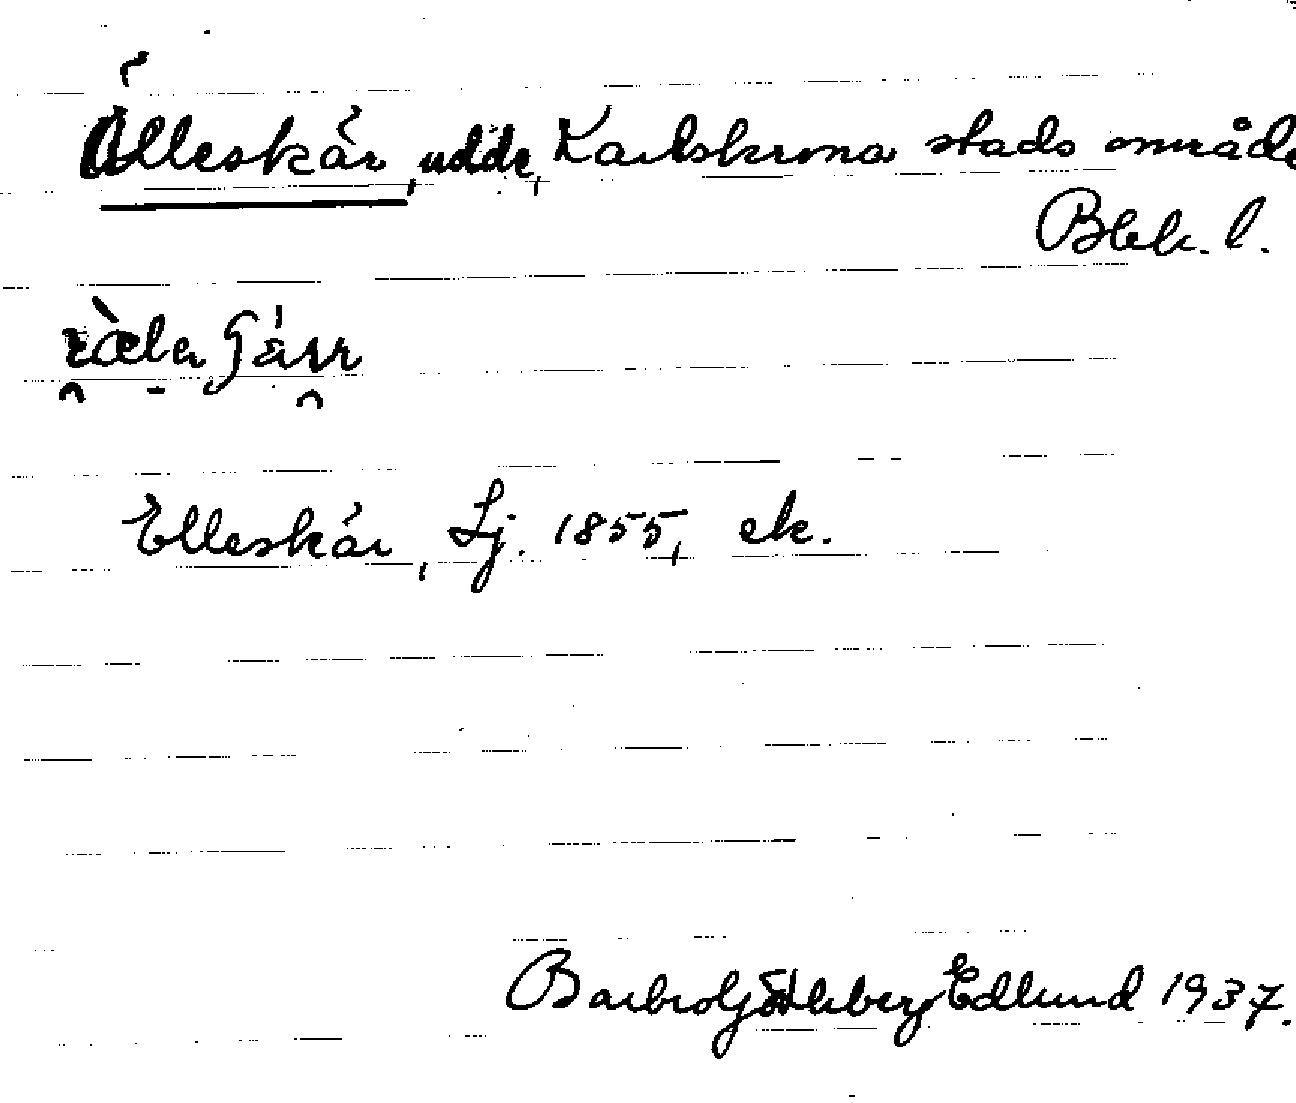 Älleskär, udde, Karlskrona stads område
Blek. l.
Elleskär, Lj. 1855, ek.
Barbro Götleberg Edlund 1937.